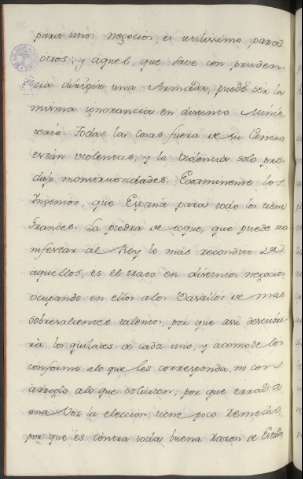 para unos negocios, es utilisimo para
otros; y aquel que sabe con pruden-
cia dirigir una Armada, puede ser la
misma ignorancia en diverso Minis-
terio. Todas las cosas fuera de su Centro
están violentas, y la violencia solo pro-
duze monstruosidades. Examinense los
Ingenios, que España para todo los tiene
grandes. La piedra de toque, que puede ma-
nifestar al Rey lo mas recondito de
aquellos, es el trato en distintos negocios,
ocupando en ellos a los Vasallos de mas
sobresalientes talentos, por que assi descubri-
rá los quilates de cada uno, y acomodelos
conforme a lo que les corresponda, ni con
arreglo a lo que soliciten, por que errada
una vez la eleccion, tiene poco remedio,
por que es contra toda buena Razon de Estado